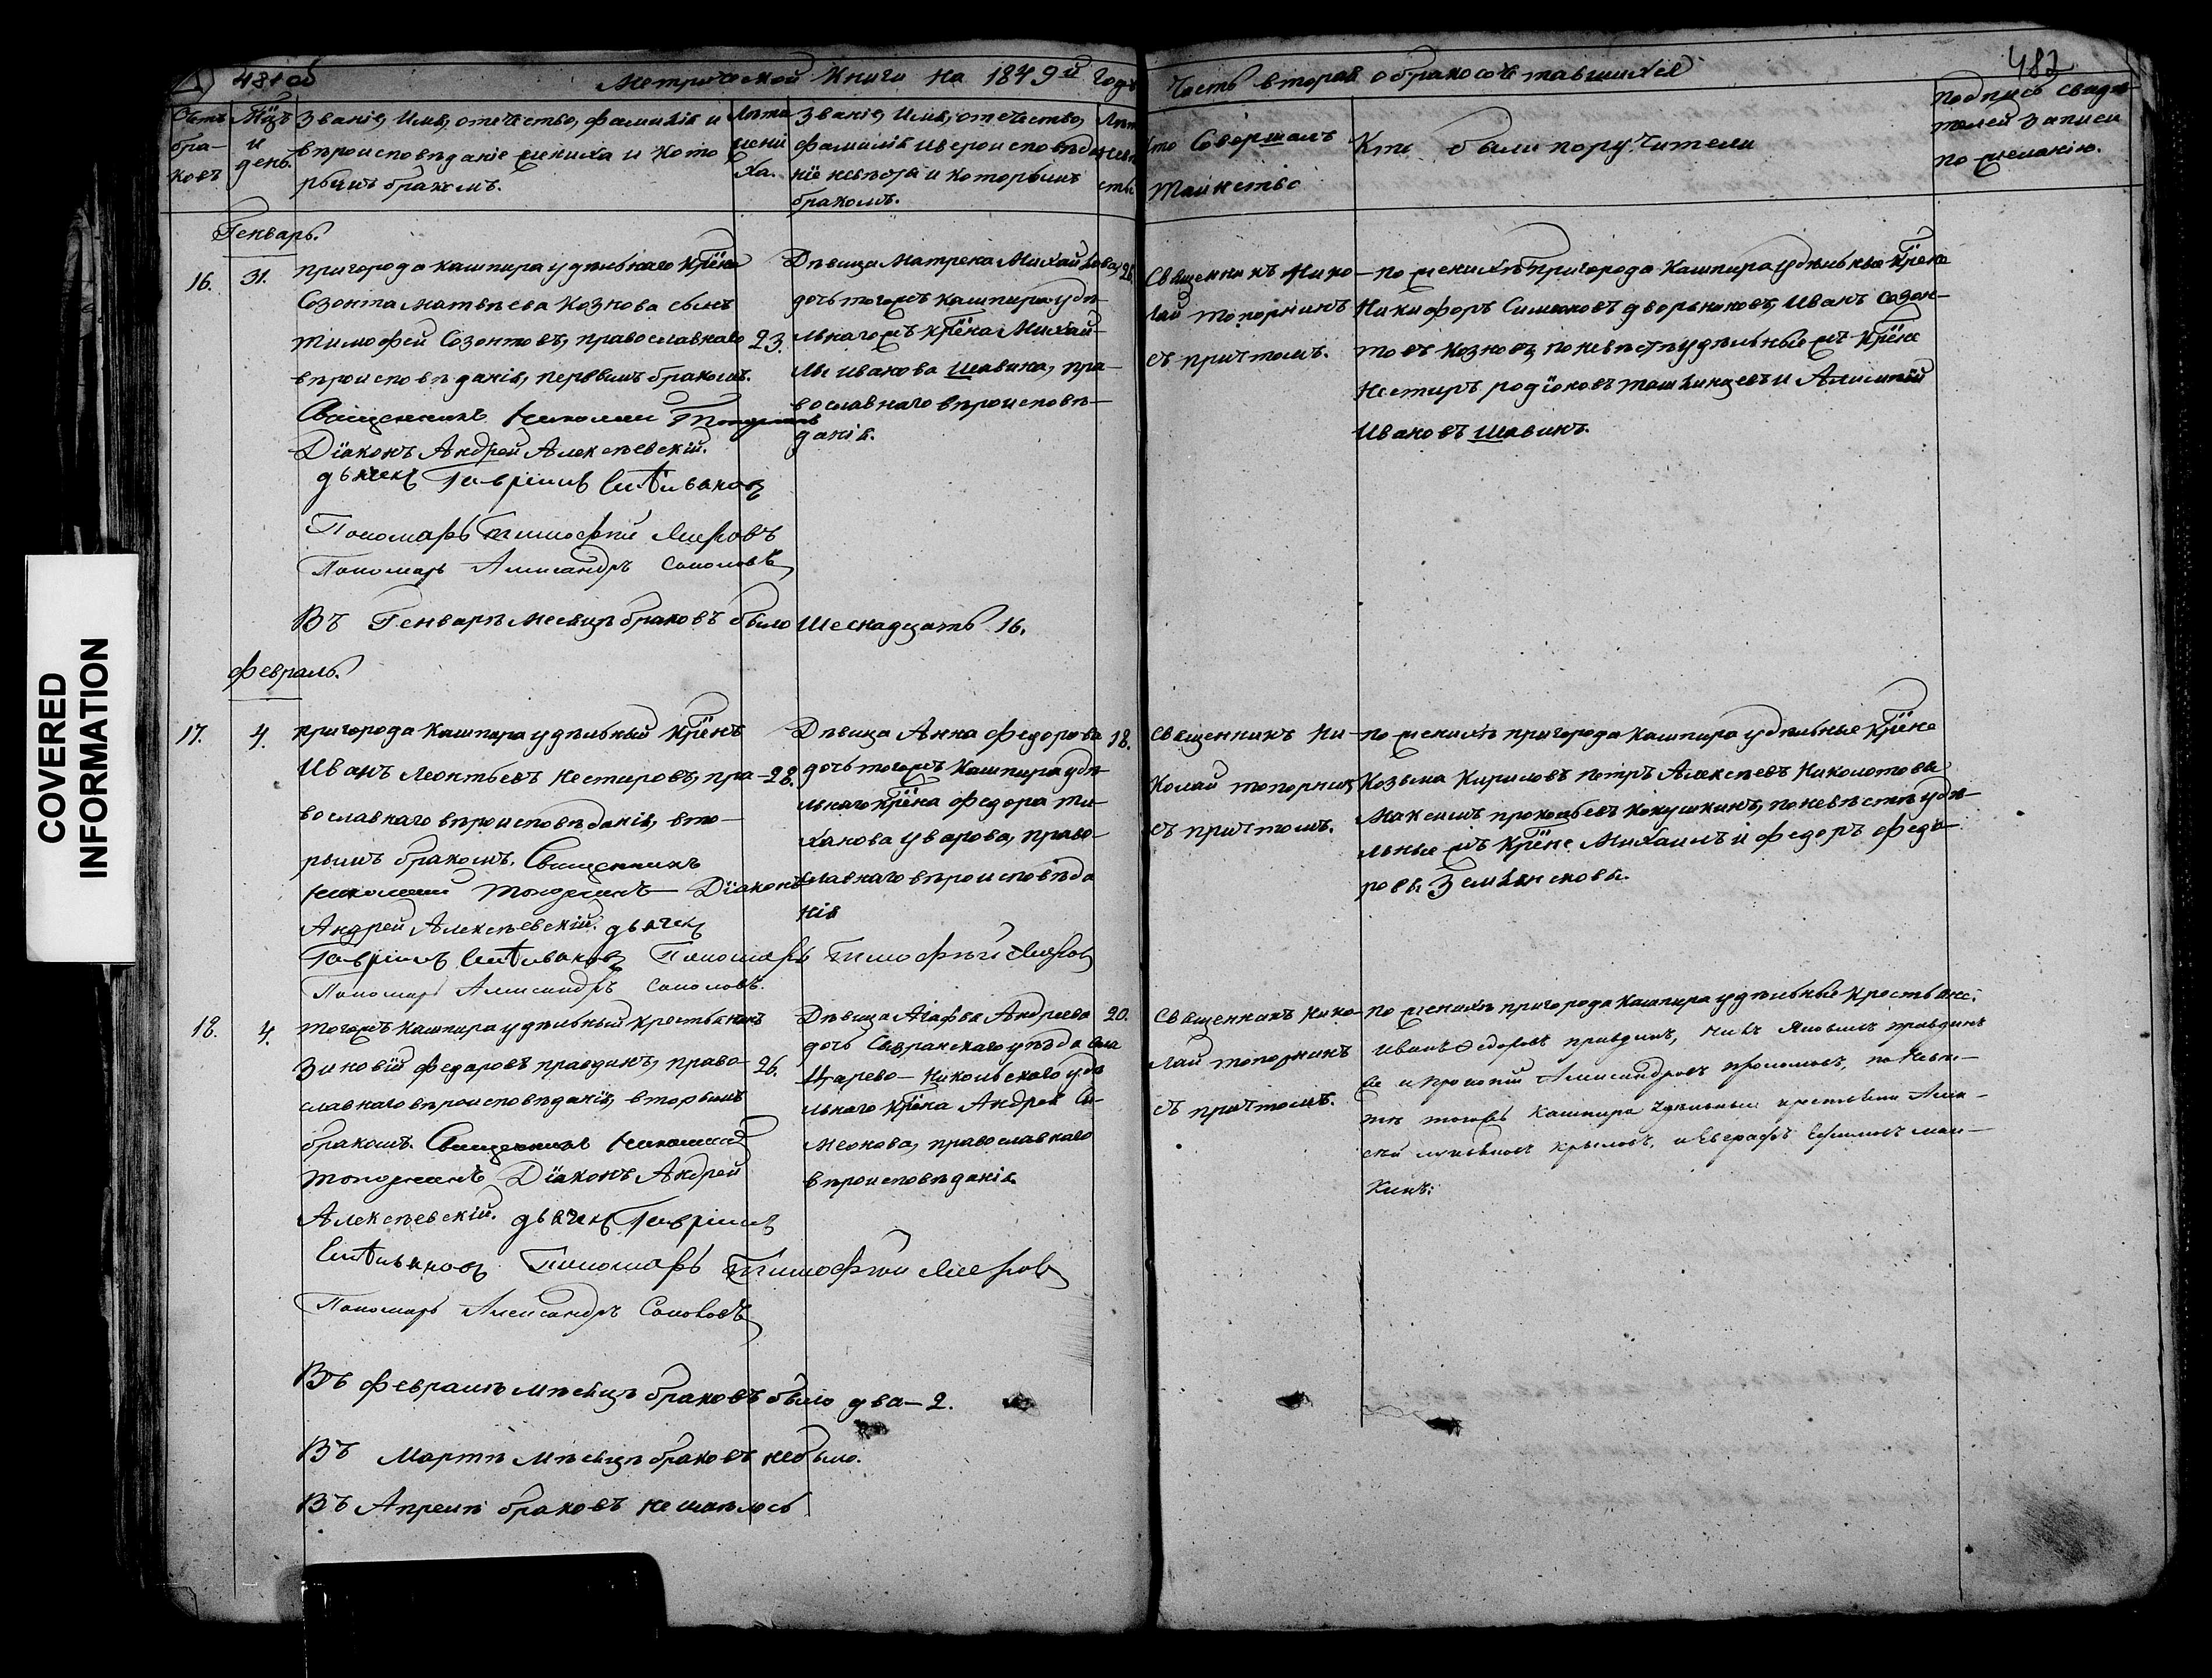 431 об
Метрической Книги на 1849й Годъ
Часть вторая о бракосочетавшихся
482
Счетъ браковъ
Мцъ и день
Званіе, Имя, отечество, фамилія и
вѣроисповѣданіе жениха и кото
рымъ бракомъ.
Лѣта жени
ха.
Званіе, Имя, отечество,
фамилія и вероисповѣда
ніе невѣсты и которымъ
бракомъ.
Кто Совершалъ
Таинство
Кто были поручители
Подпись свидѣ
телей записи
по желанію.
Генварь.
16.
31.
пригорода Кашпира удѣльнаго Крёна
Созонта Матвѣева Кознова сынъ
Тимофей Созонтовъ, православнаго
вѣроисповѣданія, первымъ бракомъ.
23.
Священникъ Николай Топорнинъ
Діаконъ Андрей Алексѣевскій.
дьячекъ Гавріилъ
Пономарь Тимофей
Пономарь Александръ Соколовъ
Дѣвица Матрена Михайлова,
дочь тогожъ Кашпира удѣ-
льнагожъ Крёна Михай-
лы Иванова Шавина, пра-
вославнаго вѣроисповѣ-
данія.
Священникъ Нико-
лай Топорнинъ
съ причтомъ.
по женихѣ Пригорода Кашпира удѣльные Крёне
Никифоръ Симіоновъ дворыниковъ, Иванъ Созон-
товъ Козновъ, по невѣстѣ удѣльныежъ Крёне
Нестеръ Родіоновъ и Алимпій
Ивановъ Шавинъ.
Въ Генварѣ месяцѣ браковъ было Шеснадцать 16.
Февраль.
17.
4.
пригорода Кашпира удѣльный Крёнъ
Иванъ Леонтьевъ Нестеровъ, пра-
вославнаго вѣроисповѣданія, вто-
рымъ бракомъ. Священникъ
28.
Николай Топорнинъ Діаконъ
Андрей Алексѣевскій. дьячекъ
Гавріилъ Пономарь Тимофей
Пономарь Александръ Соколовъ.
Дѣвица Анна Федорова
18.
дочь тогожъ Кашпира удѣ-
льнаго Крёна Федора Ти-
ханова Уварова, право-
славнаго вѣроисповѣда
нія
Священникъ Ни-
колай Топорнинъ
съ причтомъ.
по женихѣ пригорода Кашпира удѣльные Крёне
Козьма Кириловъ Петръ Алексѣевъ Николотовы
Максимъ Прокофьевъ Кокушкинъ, по невѣстѣ удѣ-
льные жъ Крёне Михаилъ и Федоръ Федо-
ровы Землянсковы.
18.
4.
тогожъ Кашпира удѣльный крестьянинъ
Зиновій Федоровъ Правдинъ, право-
славнаго вѣроисповѣданія, вторымъ
бракомъ. Священникъ Николай
26.
Топорнинъ Діаконъ Андрей
Алексѣевскій. дьячекъ Гавріилъ
Пономарь Тимофей
Пономарь Александръ Соколовъ
Дѣвица Агафья Андреева
20.
дочь Сызранскаго уѣзда села
Царево-Никольскаго удѣ
льнаго Крёна Андрея Си-
меонова, православнаго
вѣроисповѣданія.
Священникъ Нико-
лай Топорнинъ
съ причтомъ.
по женихѣ пригорода Кашпира удѣльные Крестьяне:
Иванъ Федоровъ Правдинъ, Яковлевъ Правдинъ
и Прокопій Александровъ по Невѣ-
стѣ тогожъ Кашпира Удѣльные крестьяне Алек-
сѣй Крыловъ, и Евграфъ Ефимовъ
Въ Февралѣ мѣсяцѣ браковъ было два-2.
Въ Мартѣ мѣсяцѣ браковъ небыло.
Въ Апрелѣ браковъ не имѣлось
COVERED
INFORMATION